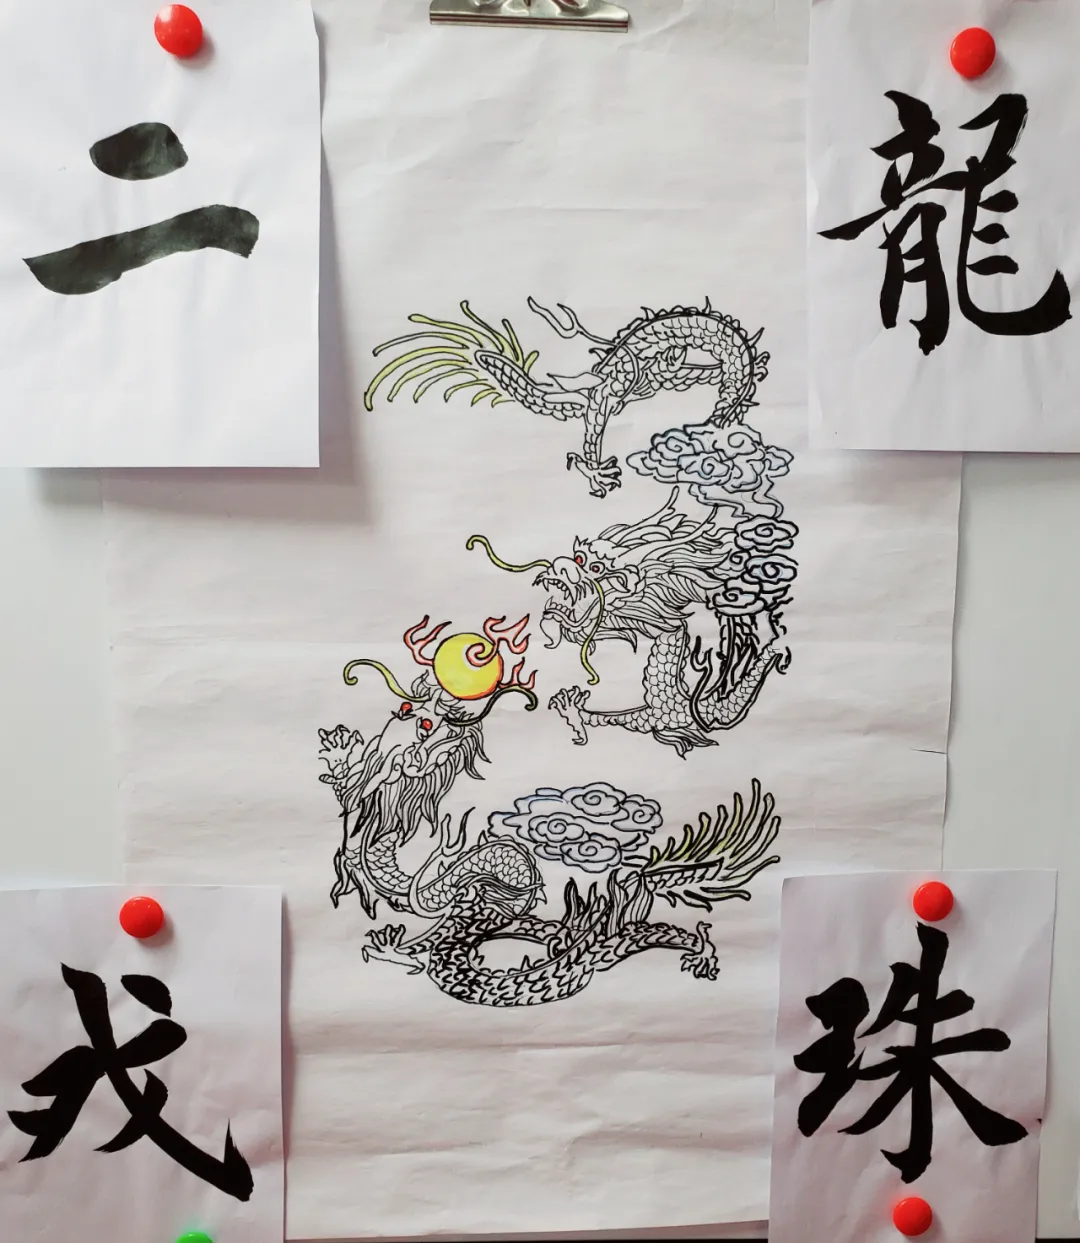 二龍
戏珠